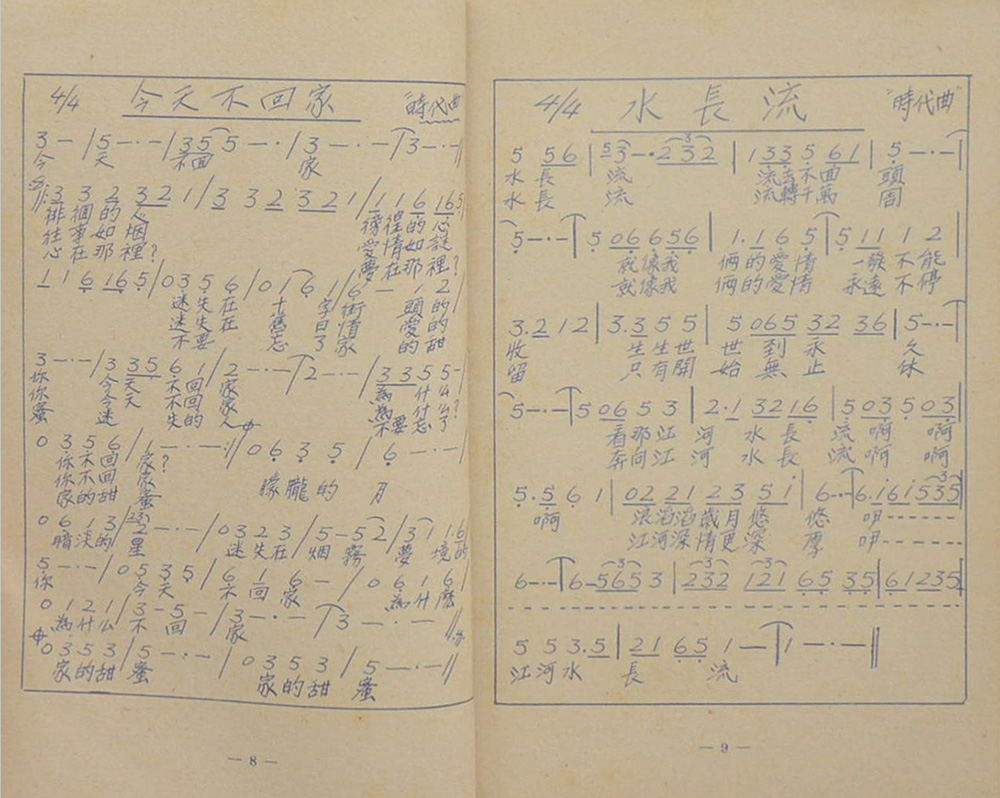 4/4 今天不回家 "時代曲"
3 — / 5 — — / 3 5 5 — · / 3 — · — / 3 — · — //
今 天 不回 家
//: 3 3 2 3 2 1 / 3 3 2 3 2 1 / 1 1 6 1 6 5 /
徘徊的人 徬徨的心
往事如烟 愛情如謎
心在那裡? 夢在那裡?
1 1 6 1 6 5 / 0 3 5 6 / 0 1 6 1 / 6 — 1 2 /
迷失在 十字街頭的
迷失在 舊日情愛的
不要 忘了家的甜
3 — · — / 3 3 5 6 1 / 2 — · — / 2 — · — / 3 3 5 5 — /
你 今天不回家 為什么
你 今天不回家 為什么?
蜜 迷失的人 不要忘了
0 3 5 6 / 1 — · — :// 0 6 3 5 / 6 — · — /
你不回家? 朦朧的月
你不回家
家的甜蜜
0 6 1 3 / 2 — · — / 0 3 2 3 / 5 — 5 2 / 3 1 · 6 /
暗淡的星 迷失在烟霧夢境的
5 — · — / 0 5 3 5 / 6 1 6 — / 0 6 1 6 /
你 今天不回家 為什麼
0 1 2 1 / 3 — 5 — / 3 — · — / 3 — · — //
為什么不回家
0 3 5 3 / 5 — · — / 0 3 5 3 / 5 — · — //
家的甜蜜 家的甜蜜
— 8 —
4/4 水長流 "時代曲"
5 5 6 | 5 3 — · 2 3 2 | 1 3 3 5 6 1 | 5 — · — |
水長流 流去不回頭
水長流 流轉千萬周
5 — · — | 5 0 6 6 5 6 | 1 . 1 6 5 | 5 1 1 1 2
就像我 倆的愛情 一發不能
就像我 倆的愛情 永遠不停
3 . 2 1 2 | 3 . 3 5 5 | 5 0 6 5 3 2 3 6 | 5 — · — |
收 生生世世到永久
留 只有開始無止休
5 — · — | 5 0 6 5 3 | 2 · 1 3 2 1 6 | 5 0 3 5 0 3
看那江河水長流啊啊
奔向江河水長流啊啊
5 . 5 6 1 | 0 2 2 1 2 3 5 i | 6 — · — | 6 . i 6 i 5 3 5
啊 滾滔滔歲月悠悠 吚
江河深情更深厚 吚
6 — · — | 6 — 5 6 5 3 | 2 3 2 1 2 1 6 5 3 5 | 6 1 2 3 5
5 5 3 . 5 | 2 1 6 5 1 — | 1 — · — ||
江河水長流
— 9 —